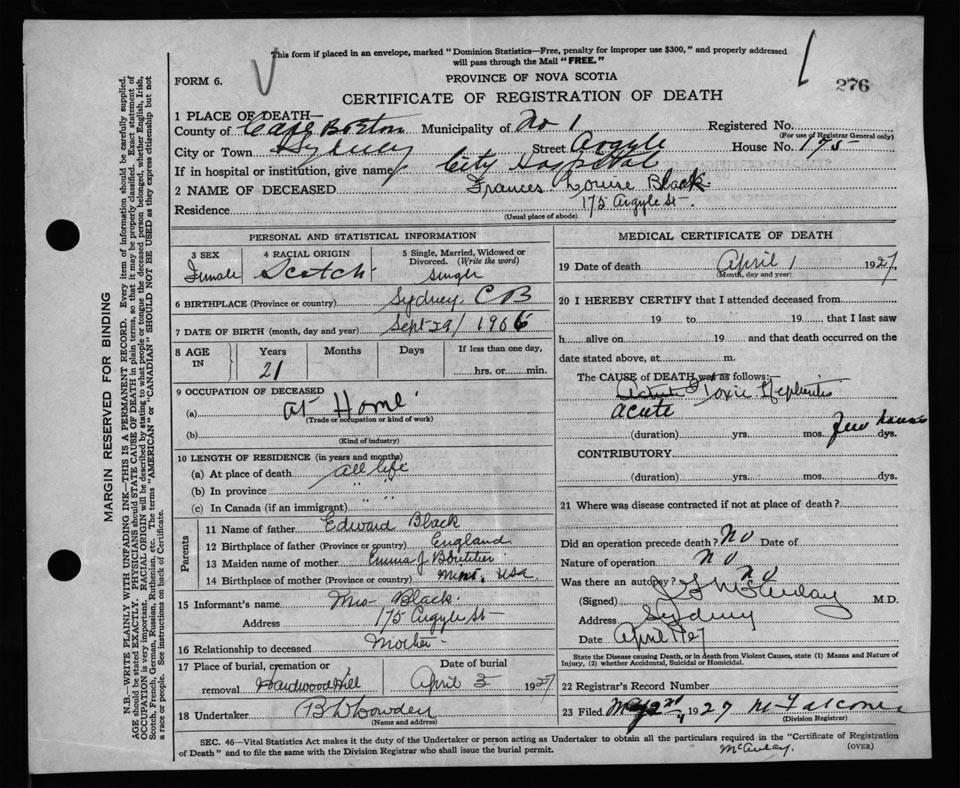 This form if placed in an envelope, marked "Dominion Statistics—Free, penalty for improper use $300," and properly addressed
will pass through the Mail "FREE."
FORM 6.
PROVINCE OF NOVA SCOTIA
276
CERTIFICATE OF REGISTRATION OF DEATH
1 PLACE OF DEATH—
County of Cape Breton Municipality of No 1 Registered No.
(For use of Registrar General only)
City or Town Sydney Street Argyle House No. 175
If in hospital or institution, give name City Hospital
2 NAME OF DECEASED Frances Louise Black
Residence 175 Argyle St.
(Usual place of abode)
PERSONAL AND STATISTICAL INFORMATION
3 SEX Female
4 RACIAL ORIGIN Scotch
5 Single, Married, Widowed or Divorced. (Write the word) Single
6 BIRTHPLACE (Province or country) Sydney. C B
7 DATE OF BIRTH (month, day and year) Sept 29/1906
8 AGE IN Years 21 Months Days If less than one day, hrs. or min.
9 OCCUPATION OF DECEASED
(a) At Home
(Trade or occupation or kind of work)
(b)
(Kind of industry)
10 LENGTH OF RESIDENCE (in years and months)
(a) At place of death all life
(b) In province " "
(c) In Canada (if an immigrant)
Parents
11 Name of father Edward Black
12 Birthplace of father (Province or country) England
13 Maiden name of mother Emma J. Boutilier
14 Birthplace of mother (Province or country) USA
15 Informant's name Mrs Black
Address 175 Argyle St
16 Relationship to deceased Mother
17 Place of burial, cremation or removal Hardwood Hill
Date of burial April 3 1927
18 Undertaker
(Name and address)
MEDICAL CERTIFICATE OF DEATH
19 Date of death April 1 1927
(Month, day and year)
20 I HEREBY CERTIFY that I attended deceased from
19 to 19 that I last saw
h alive on 19 and that death occurred on the
date stated above, at m.
The CAUSE of DEATH was as follows:—
Toxic Nephritis
acute
(duration) yrs. mos. Few hours dys.
CONTRIBUTORY
(duration) yrs. mos. dys.
21 Where was disease contracted if not at place of death?
Did an operation precede death? No Date of
Nature of operation No
Was there an autopsy? No
(Signed) M.D.
Address Sydney
Date April
State the Disease causing Death, or in death from Violent Causes, state (1) Means and Nature of
Injury, (2) whether Accidental, Suicidal or Homicidal.
22 Registrar's Record Number
23 Filed 1927
(Division Registrar)
SEC. 46—Vital Statistics Act makes it the duty of the Undertaker or person acting as Undertaker to obtain all the particulars required in the "Certificate of Registration
of Death" and to file the same with the Division Registrar who shall issue the burial permit.
McAulay.
(OVER)
MARGIN RESERVED FOR BINDING
N.B.—WRITE PLAINLY WITH UNFADING INK—THIS IS A PERMANENT RECORD. Every item of information should be carefully supplied.
AGE should be stated EXACTLY. PHYSICIANS should STATE CAUSE OF DEATH in plain terms, so that it may be properly classified. Exact statement of
OCCUPATION is very important. RACIAL ORIGIN will be described by stating to what people or tongue the deceased person belonged, whether English, Irish,
Scotch, French, German, Russian, Ruthenian, etc. The terms "AMERICAN" or "CANADIAN" SHOULD NOT BE USED as they express citizenship but not
a race or people. See instructions on back of Certificate.